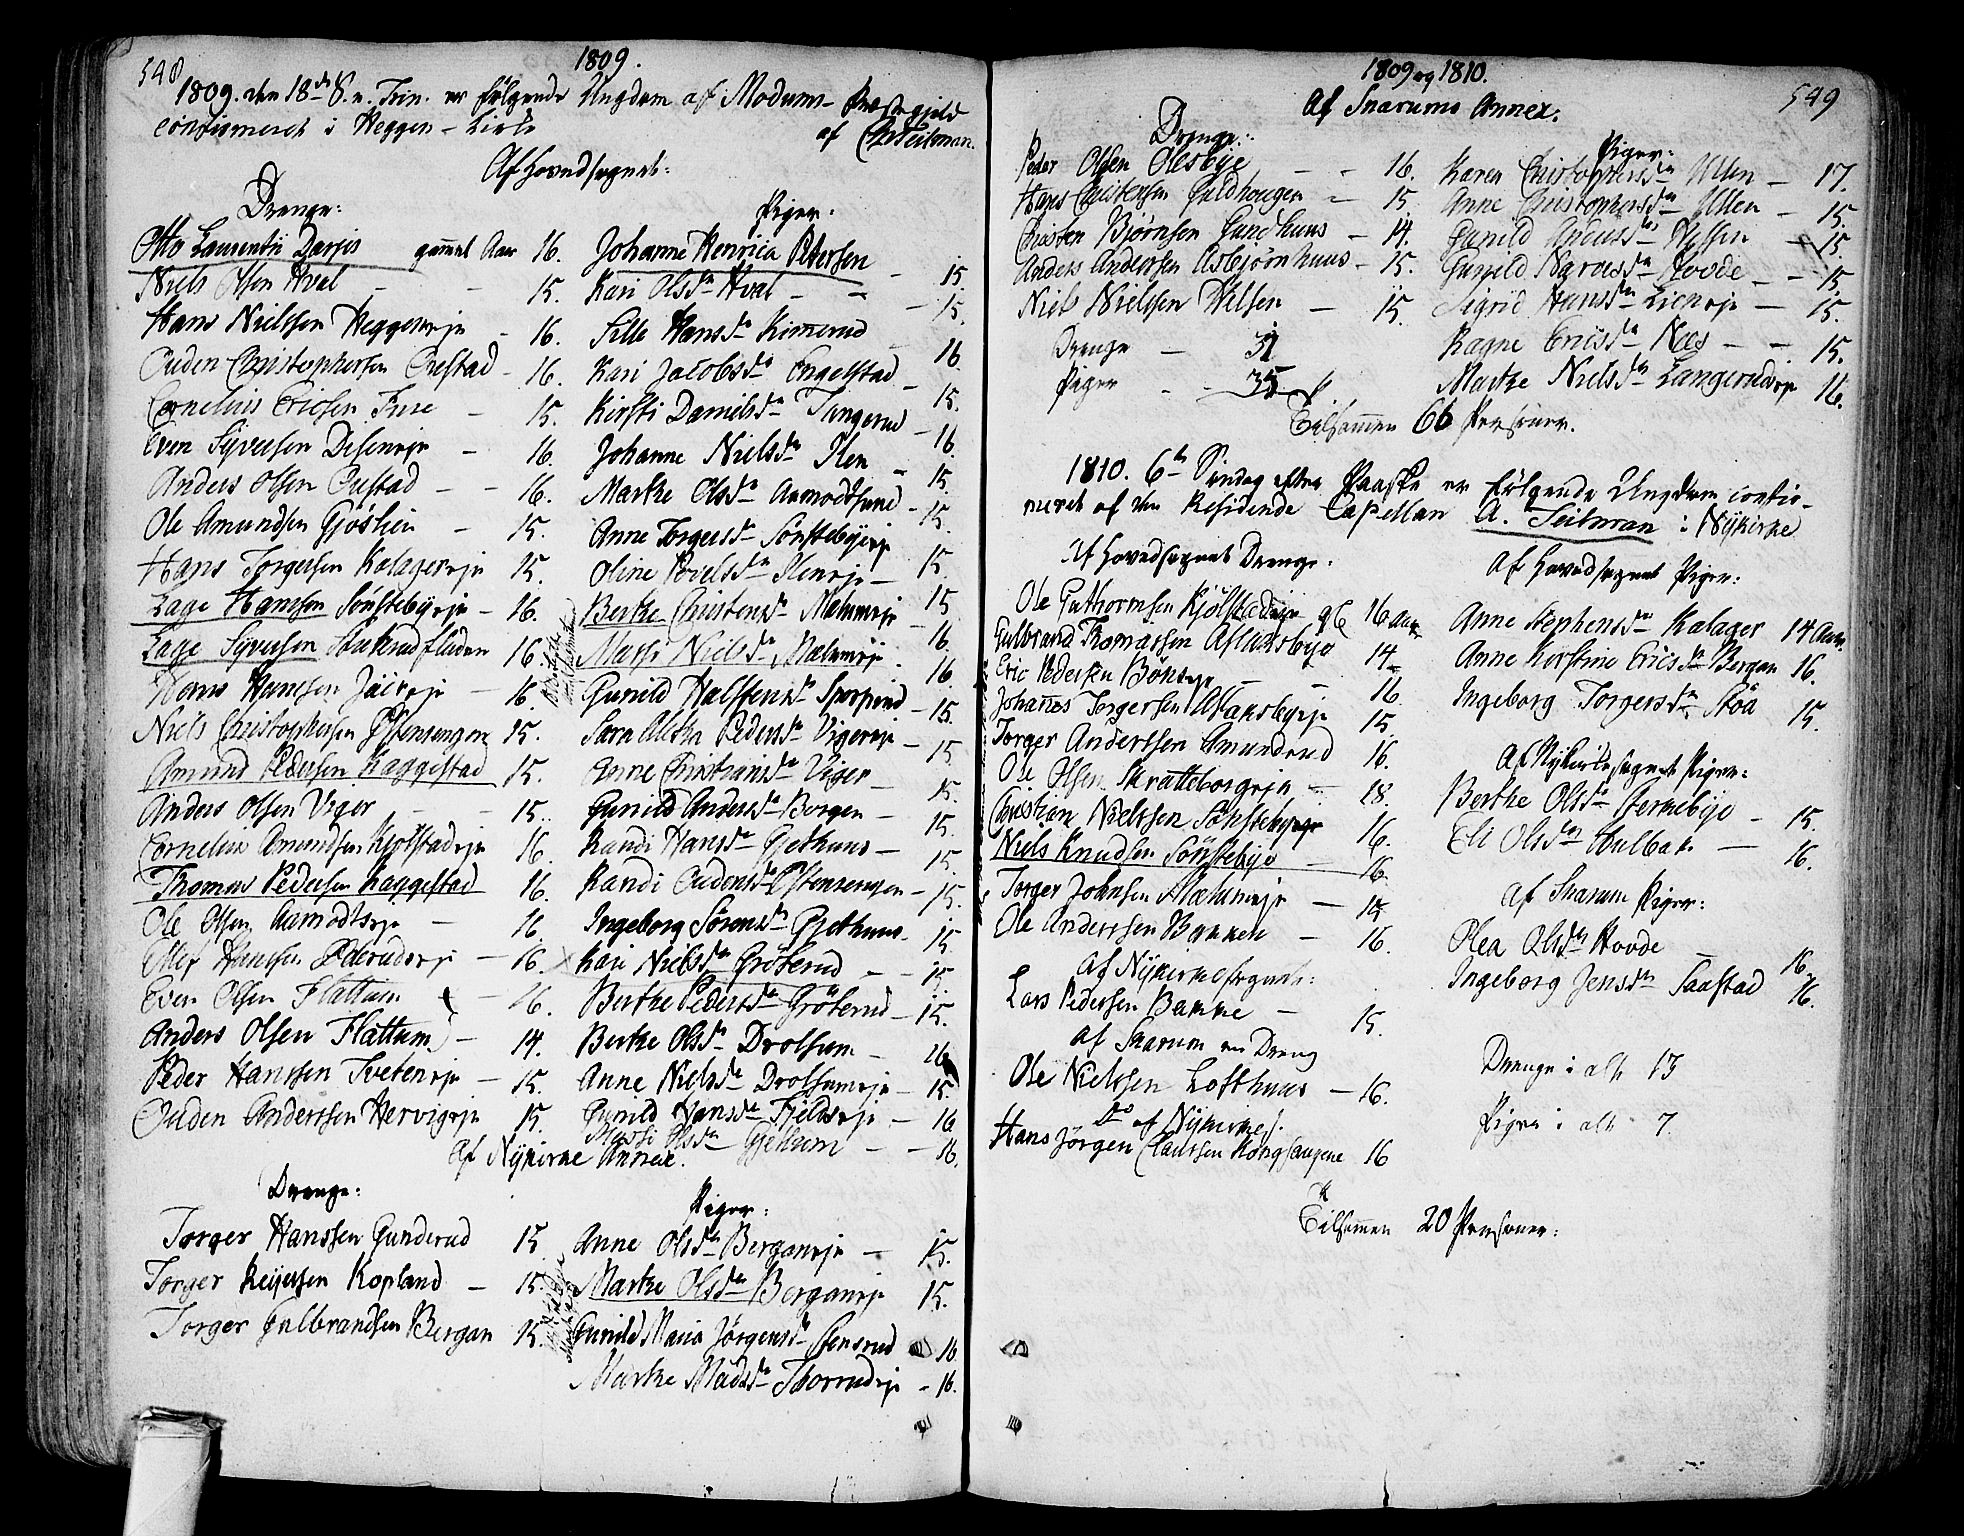 548
1809.
1809. den 18de S. e. Trin. er følgende Ungdom af Modums Præstegjeld
confirmeret i Heggen Kirke af Chr. Teilman.
Af Hovedsognet:
Drenge:
Otto Laurentii Darjis gammel Aar 16.
Niels Olsen Hval - - 15.
Hans Nielssen Heggeneje - 16.
Ouden Christophersen Crestad - 16.
Cornelius Ericsen Fure - 15.
Even Syversen Diseneje - 16.
Anders Olsen Custad - - 16.
Ole Amundsen Gjöslien - 15.
Hans Torgersen Kalagereje 15.
Lage Hanssen Sönstebyeje - 16.
Lage Syversen 16.
Hans Hanssen - 16.
Niels Christophersen Östensengen 15.
Amund Pedersen Kaggestad 15.
Anders Olsen Viger - - 15.
Cornelius Amundsen Kjölstadeje 16.
Thomas Pedersen Kaggestad 16.
Ole Olsen Aamodtseje - 16
Hanssen - 16.
Even Olsen Flattum - 16.
Anders Olsen Flattum - 14.
Peder Hanssen Tveteneje - 15.
Ouden Anderssen Hervigeje 15.
Piger:
Johanne Henrica Petersen - 15.
Kari Olsdr Hval - - 15.
Sille Hansdr Kimerud - 16
Kari Jacobsdr Engelstad - 15.
Kirsti Danielsdr Tingerud - 16
Johanne Nielsdr Ilen - 15.
Marthe Olsdr Aamodtsund - 15.
Anne Torgersdr Sönstebyeje 15
Oline Povelsdr Ileneje - 15
Berthe Christensdr Malumeje - 16
Massi Nielsdr Malumeje. 16
Gunild Halstensdr - 15.
Sara Aletha Pedersdr Vigereje - 15
Anne Christiansdr Viger - 15.
Gunild Andersdr Bergen - 15.
Randi Hansdr Gjethuus - 15.
Randi Oudensdr Östensengen - 15.
Ingeborg Sörensdr Gjethuus - 15
Kari Nielsdr Gröterud - - 15.
Berthe Pedersdr Gröterud - 15.
Berthe Olsdr Drolsum - 16
Anne Nielsdr Drolsumeje - 15.
Gunild Hansdr Fjeldeje - 16
Massi Olsdr Gjethum - - 16.
Af Nykirke Annex.
Drenge:
Torger Hanssen Gunderud 15
Torger Reijersen Kopland - 15.
Torger Gulbrandsen Bergan 15.
Piger:
Anne Olsdr Berganeje - 15.
Marthe Olsdr Berganeje 15.
Gunild Maria Jörgensdr Stensrud 16
Marthe Madsdr Thorrudeje - 16.
1809 og 1810.
549
Af Snarums Annex.
Drenge:
Peder Olsen Olesbye - - 16.
Hans Christensen Guldhougen - 15.
Christen Bjørnsen Gundhuus - 14.
Anders Andersen Asbjörnhuus - 15.
Niels Nielssen Velsen - 15.
Drenge - 31
Piger - - 35
Piger:
Karen Christophersdr Ulsen - 17.
Anne Christophersdr Ulsen - 15.
Gunild - 15.
Gunild Narvesdr Hovde - - 15
Sigrid Hansdr Lieneje - 15.
Ragne Ericsdr Nees - - 15.
Marthe Nielsdr Langerudeje 16.
Tilsammen 66 Personer.
1810. 6te Søndag efter Paaske er følgende Ungdom confir-
meret af den Residende Capellan A. Teilman i Nykirke
Af Hovedsognet Drenge:
Ole Guthormsen Kjölstadeje gl. 16 Aar
Gulbrand Thomassen Aslaksbye 14
Eric Pedersen Böneje - - 16
Johannes Torgersen Aslaksbyeje 15
Torger Anderssen Amundrud 16.
Ole Olsen Skratteborgeje - 18.
Christian Nielssen Sönstebyeje 16.
Niels Knudsen Sönstebye - 16
Torger Johnsen Malumeje - 15
Ole Anderssen Bakken - 16.
Af Nykirkesognet:
Lars Pedersen Bakke - 15.
Af Snarum en Dreng
Ole Nielssen Lofthuus - 16.
Do af Nykirke.
Hans Jörgen Claussen Kongsaugene 16
Af Hovedsognet Piger:
Anne Stephensdr Kalager 14 Aar
Anne Kirstine Ericsdr Bergan 16.
Ingeborg Torgersdr Stöa 15.
Af Nykirkesognet Piger:
Berthe Olsdr Sternebye - 15.
Eli Olsdr Hulbak - 16.
Af Snarum Piger:
Olea Olsdr Hovde - 16.
Ingeborg Jensdr Saastad 16.
Drenge i alt 13
Piger i alt 7.
Tilsammen 20 Personer.